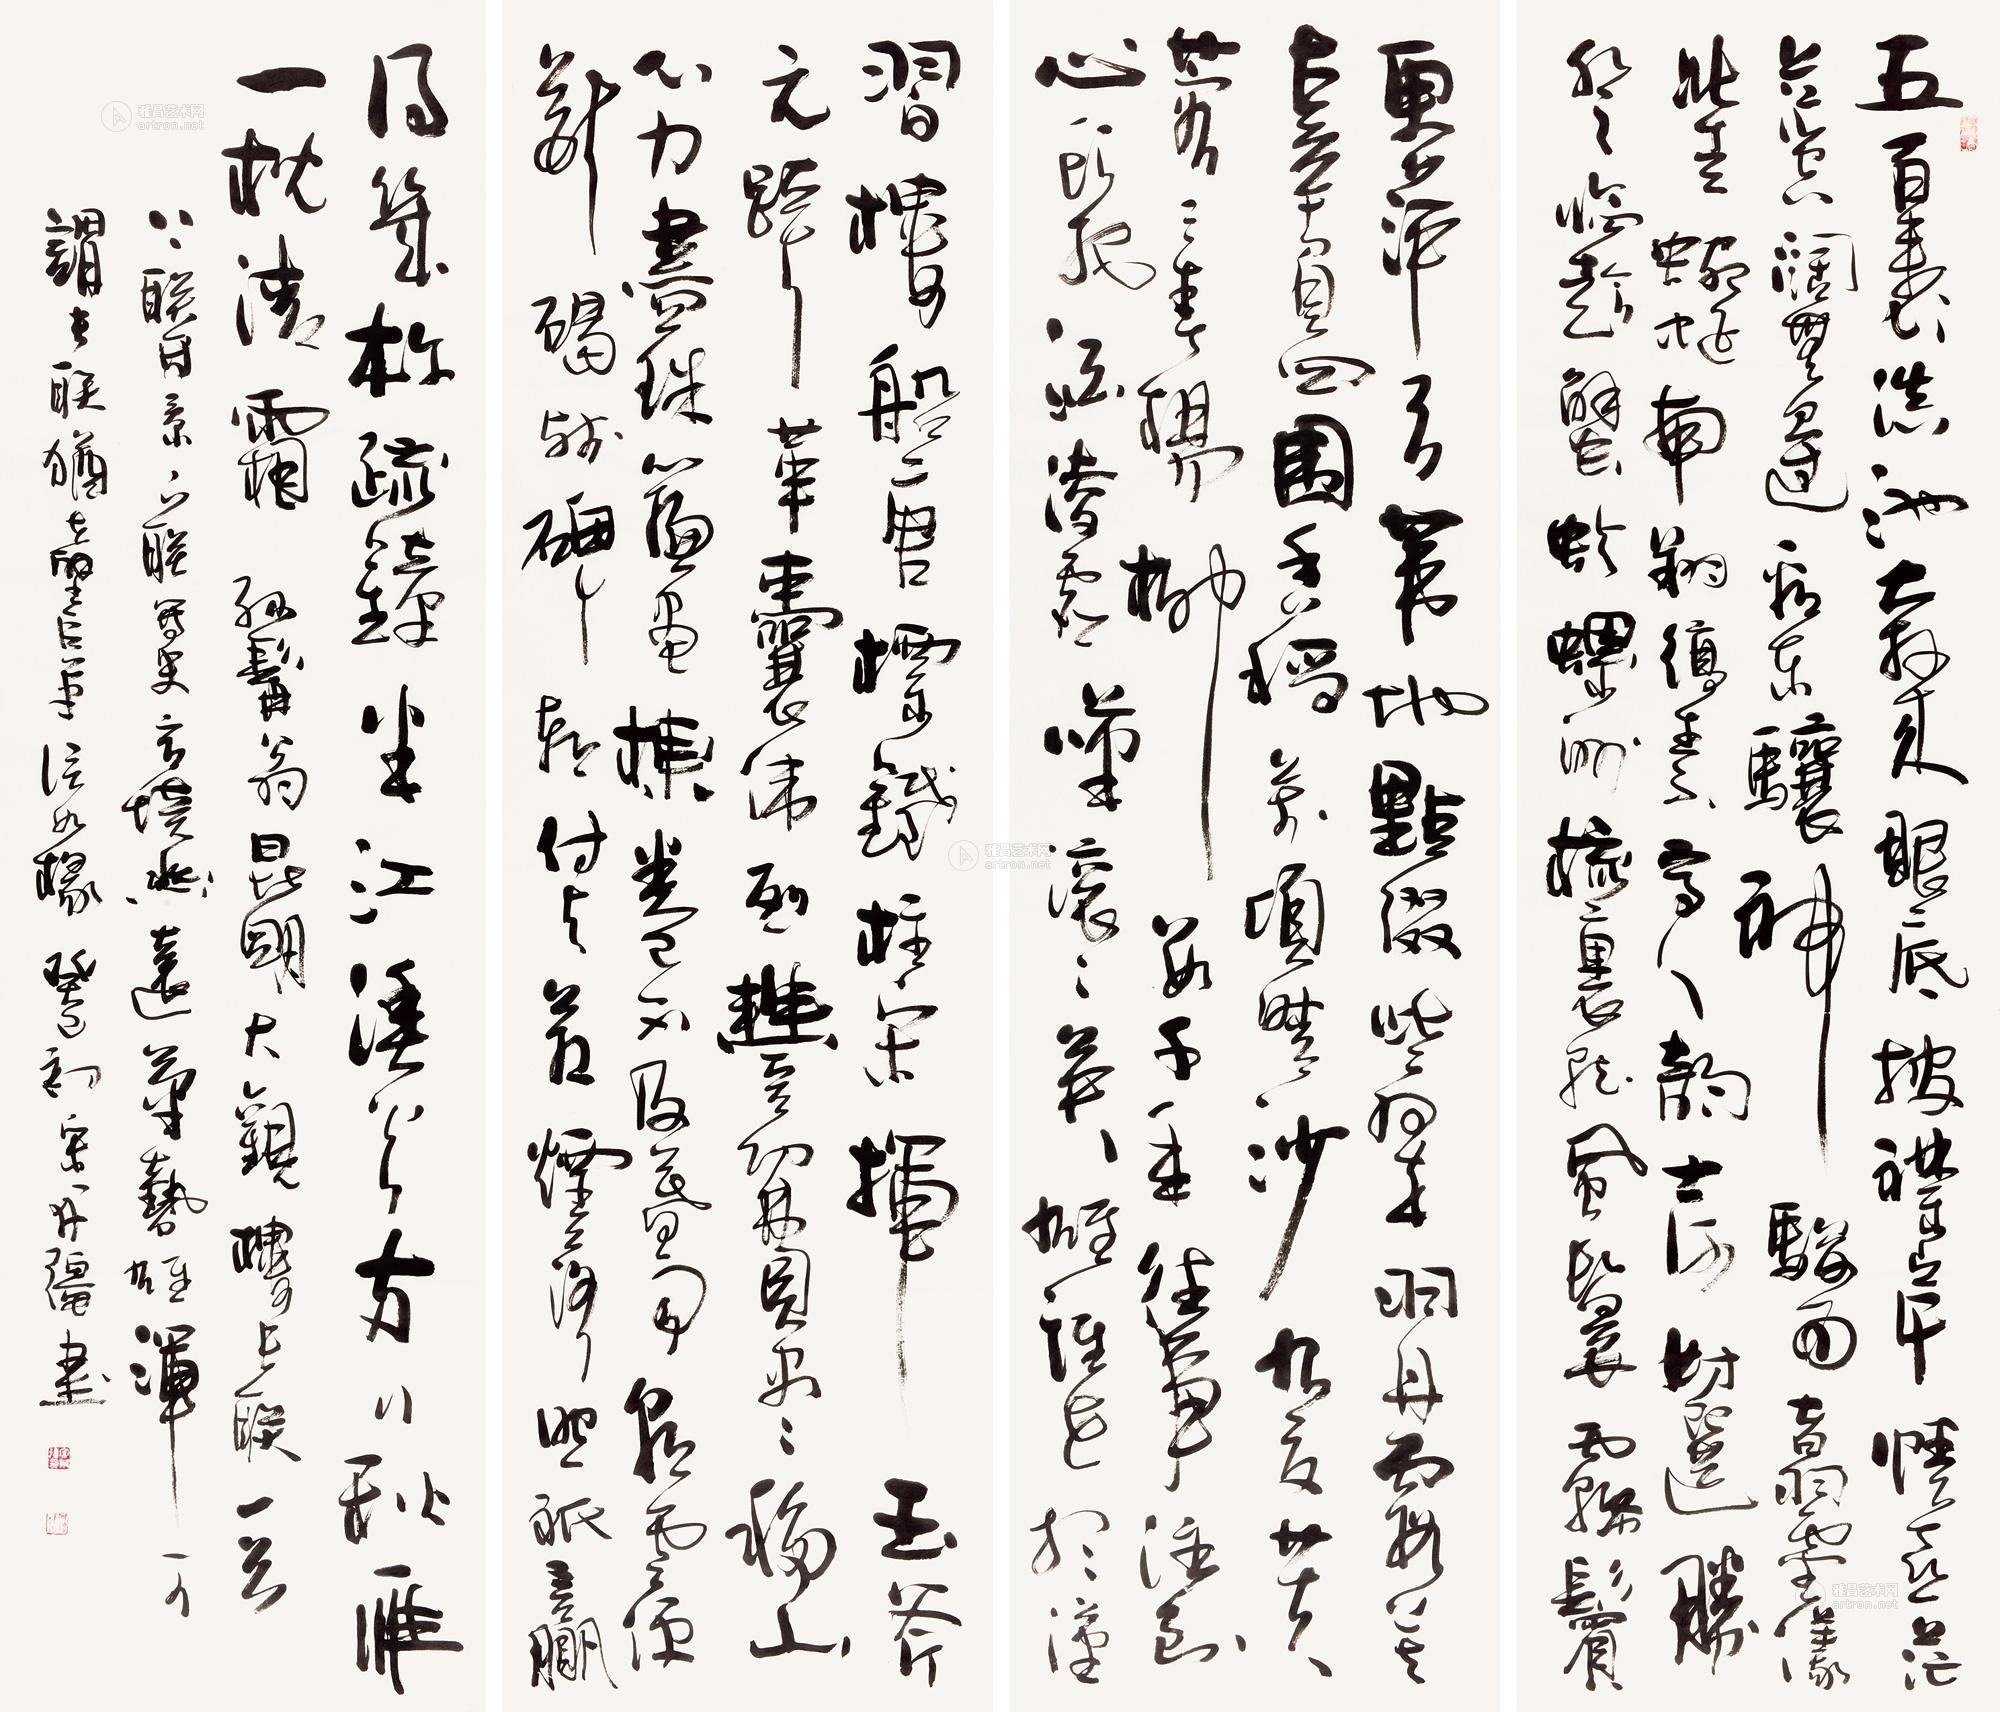 五百里滇池奔來眼底披襟岸幘喜茫茫
空闊無邊看東驤神駿西翥靈儀
北走蜿蜒南翔縞素高人韻士何妨選勝
登臨趁蟹嶼螺洲梳裹就風鬟霧鬢
更蘋天葦地點綴些翠羽丹霞莫
辜負四圍香稻萬頃晴沙九夏芙
蓉三春楊柳數千年往事注到
心頭把酒凌虛嘆滾滾英雄誰在想漢
習樓船唐標鐵柱宋揮玉斧
元跨革囊偉烈豐功費盡移山
心力盡珠簾畫棟卷不及暮雨朝雲便
斷碣殘碑都付與蒼煙落照祇贏
得幾杵疏鐘半江漁火兩行秋雁
一枕清霜 孫髯翁昆明大觀樓長聯一首
上聯寫景下聯寫史意境悠遠筆勢雄渾可
謂聯猶在壁巨筆信如椽 癸巳初 書
雅昌艺术网
artron.net
雅昌艺术网
artron.net
雅昌艺术网
artron.net